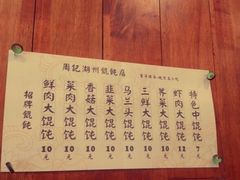 周记湖州馄饨店
招牌馄饨
鲜肉大馄饨 10元
菜肉大馄饨 10元
香菇大馄饨 10元
韭菜大馄饨 10元
马兰头馄饨 10元
三鲜大馄饨 10元
荠菜大馄饨 10元
虾肉大馄饨 12元
特色中馄饨 7元